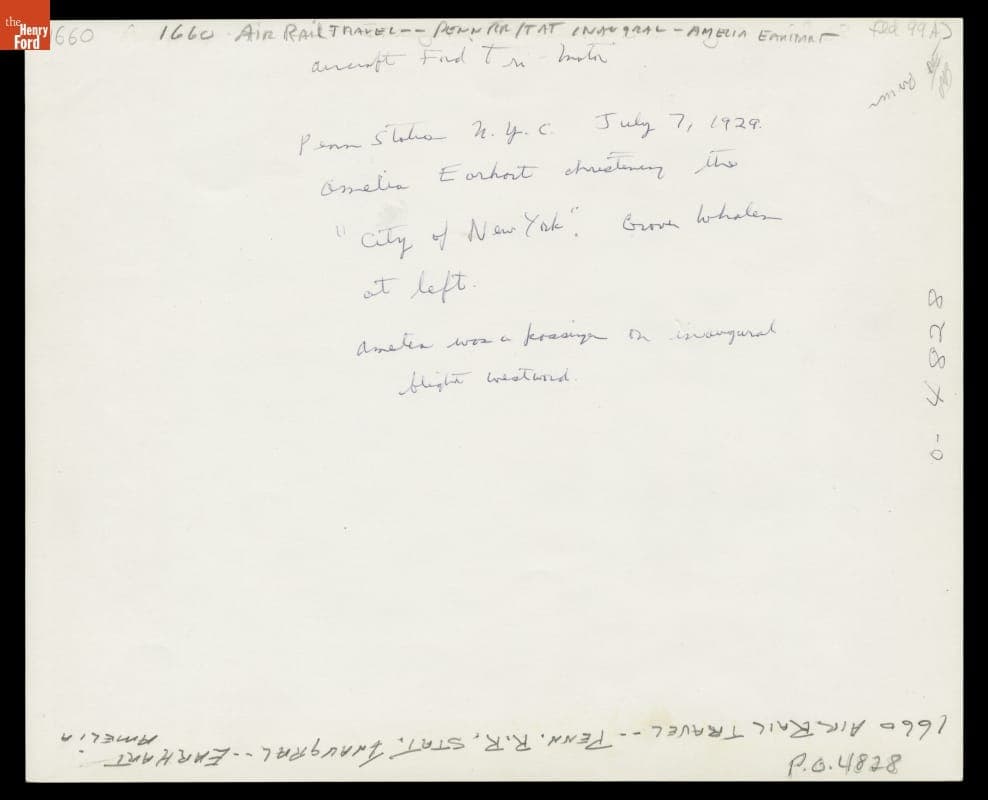 the
Henry
Ford
1660
1660 AIR RAIL TRAVEL -- PENN RR/TAT INAUGRAL - AMELIA EARHART
aircraft Ford Tri-motor
Penn Station N.Y.C. July 7, 1929.
Amelia Earhart christening the
"City of New York". Grover Whalen
at left.
Amelia was a passenger on inaugural
flight westward.
0-4828
1660 AIR RAIL TRAVEL -- PENN. R.R. STAT. INAUGRAL -- EARHART
AMELIA
P.O.4828